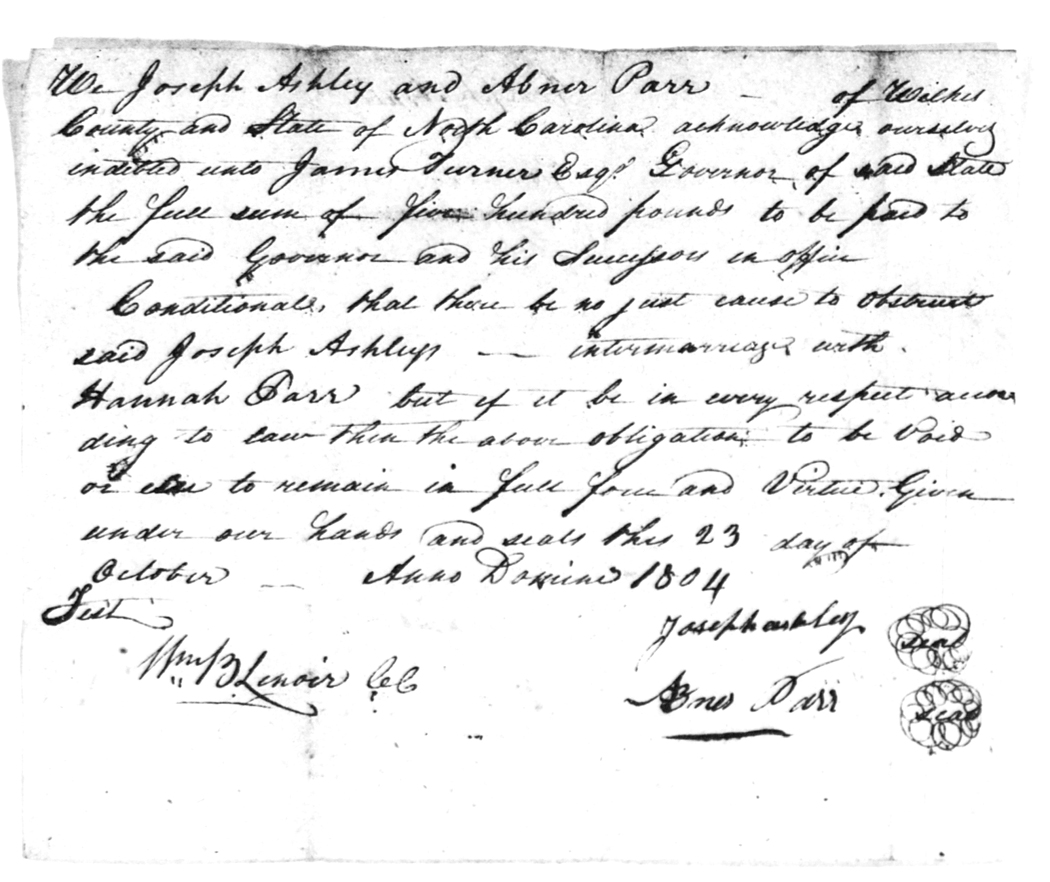 We Joseph Ashley and Abner Parr — of Wilkes
County and State of North Carolina acknowledge ourselves
indebted unto James Turner Esqr. Governor of said State
the full sum of five hundred pounds to be paid to
the said Governor and his Successors in office
Conditional, that there be no just cause to obstruct
said Joseph Ashleys — intermarriage with
Hannah Parr but if it be in every respect accor
ding to law then the above obligation to be Void
or else to remain in full force and Virtue. Given
under our hands and seals this 23 day of
October — Anno Domini 1804
Test
Joseph ashley seal
Wm B Lenoir CC
Abner Parr seal